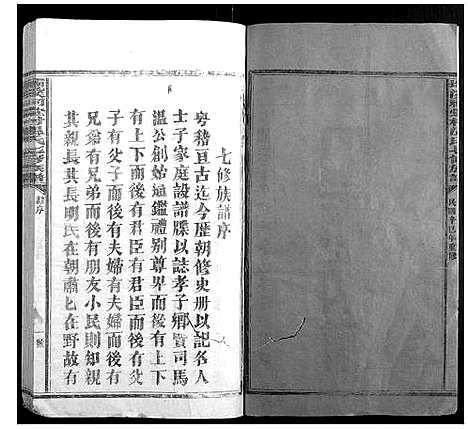 民國辛巳年重修
七修族譜序
粵稽亘古迄今歷朝修史册以記名人
士子家庭設譜牒以誌孝子鄉賢司馬
溫公創始通鑑禮別尊卑而後有上下
有上下而後有君臣有君臣而後有父
子有父子而後有夫婦有夫婦而後有
兄弟有兄弟而後有朋友小民則知親
其親長其長明民在朝肅匕在野故有
譜序